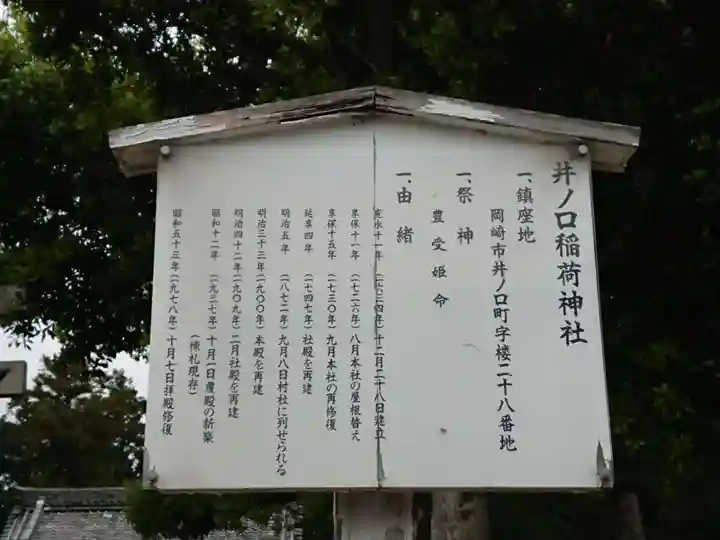 井ノ口稲荷神社
一、鎮座地
岡崎市井ノ口町字楼二十八番地
一、祭神
豊受姫命
一、由緒
寛永十一年(一六三四年)十二月二十八日建立
享保十一年(一七二六年)八月本社の屋根替え
享保十五年(一七三〇年)九月本社の再修復
延享四年(一七四七年)社殿を再建
明治五年(一八七二年)九月八日村社に列せられる
明治三十三年(一九〇〇年)本殿を再建
明治四十二年(一九〇九年)二月社殿を再建
昭和十二年(一九三七年)十月一日産殿の新築
(棟札現存)
昭和五十三年(一九七八年)十月七日拝殿修復